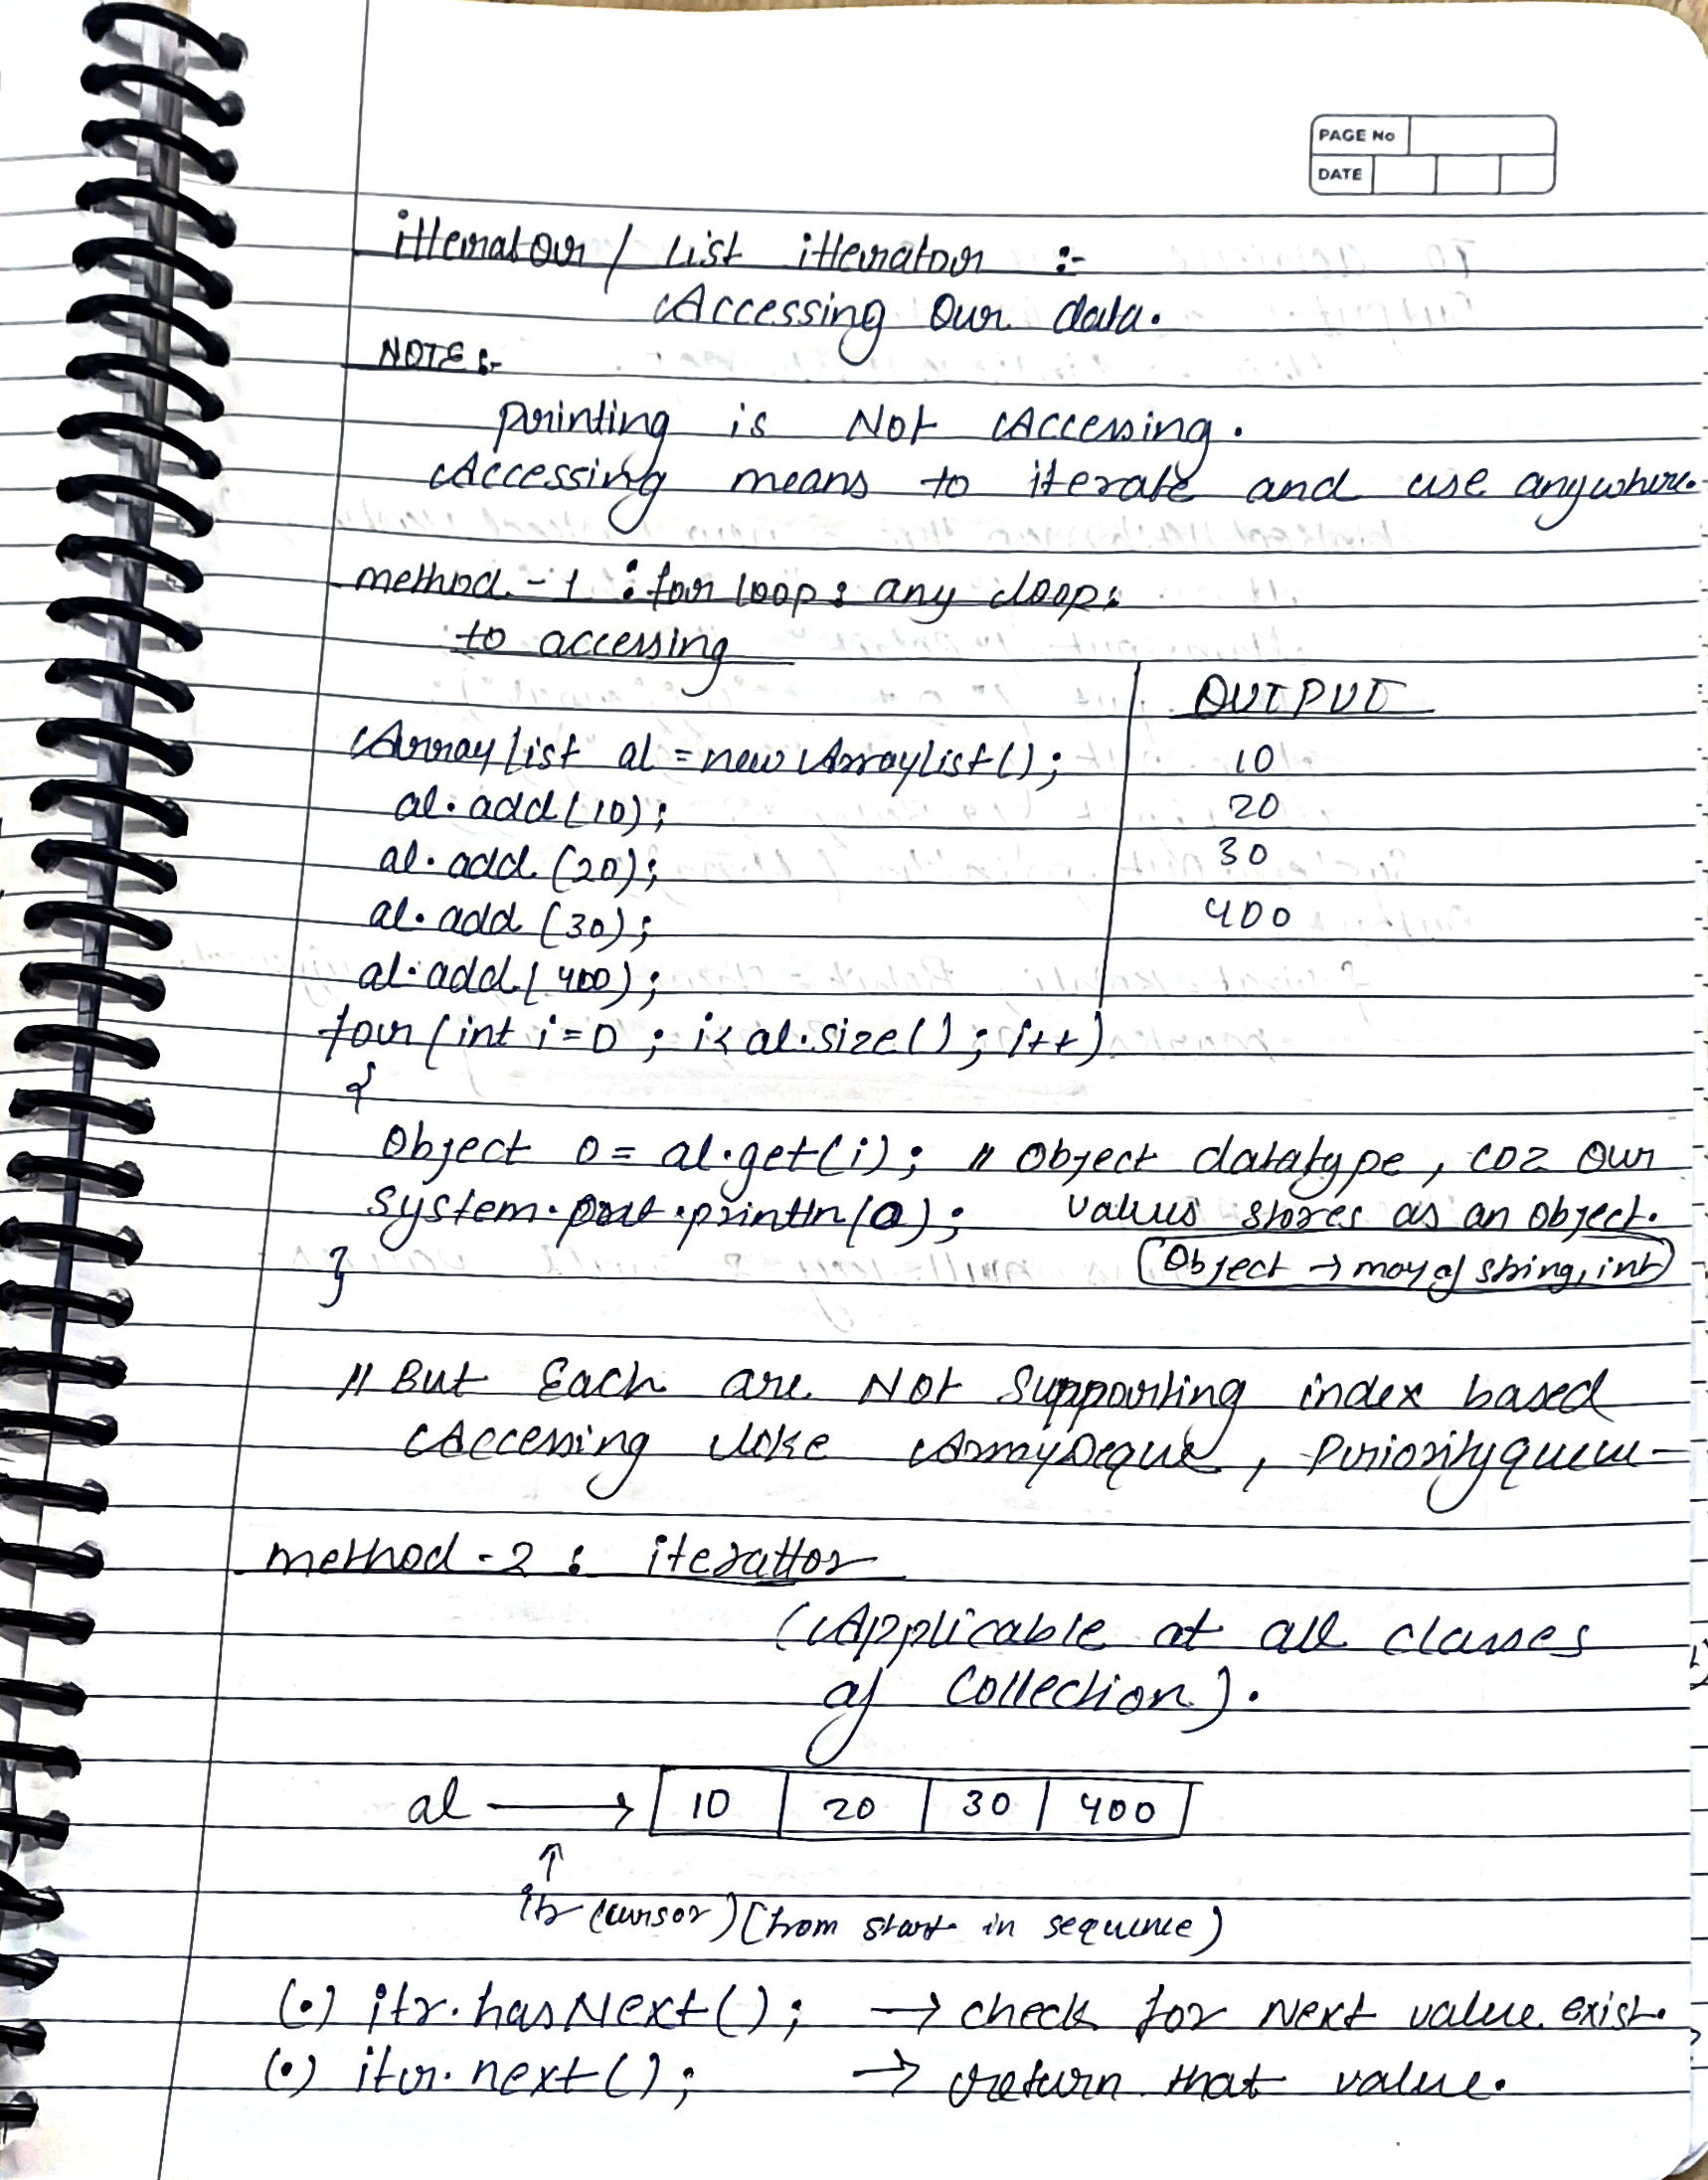 PAGE No
DATE
itteratour / List itterator :-
Accessing Our data.
NOTE :-
printing is Not Accessing.
Accessing means to iterate and use anywhere.
method - 1 : for loop : any loop :
to accessing
OUTPUT
ArrayList al = new ArrayList();
10
al.add(10);
20
al.add(20);
30
al.add(30);
400
al.add(400);
for(int i=0 ; i< al.size(); i++)
{
Object o = al.get(i); // Object datatype, coz our
system.out.println(o); values stores as an object.
} Object → may of string, int
// But Each are Not Supporting index based
Accessing like ArrayDeque, Priorityqueue
method - 2 : iterattor
(Applicable at all classes
of Collection).
al → 10 20 30 400
↑
itr (cursor) (from start in sequence)
(•) itr.hasNext(); → check for Next value exist.
(•) itr.next(); → return that value.